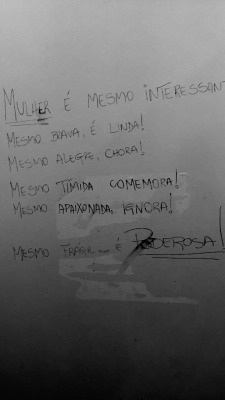 MULHER É MESMO INTERESSANT
MESMO BRAVA, É LINDA!
MESMO ALEGRE, CHORA!
MESMO TÍMIDA COMEMORA!
MESMO APAIXONADA, IGNORA!
MESMO FRÁGIL... É PODEROSA!